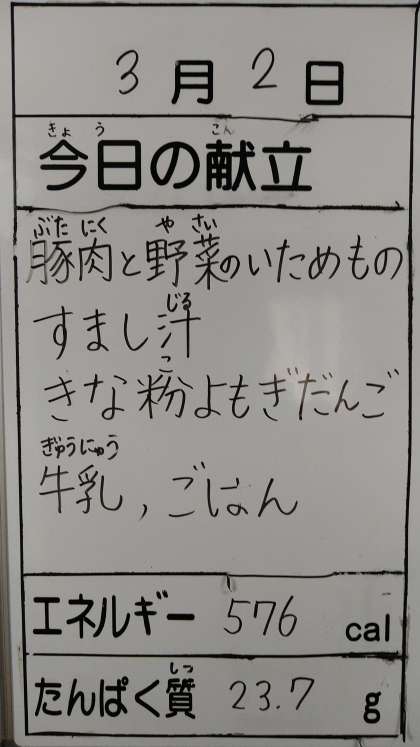 3月2日
きょう こん
今日の献立
ぶたにく やさい
豚肉と野菜のいためもの
じる
すまし汁
こ
きな粉よもぎだんご
ぎゅうにゅう
牛乳，ごはん
エネルギー 576 cal
しつ
たんぱく質 23.7 g